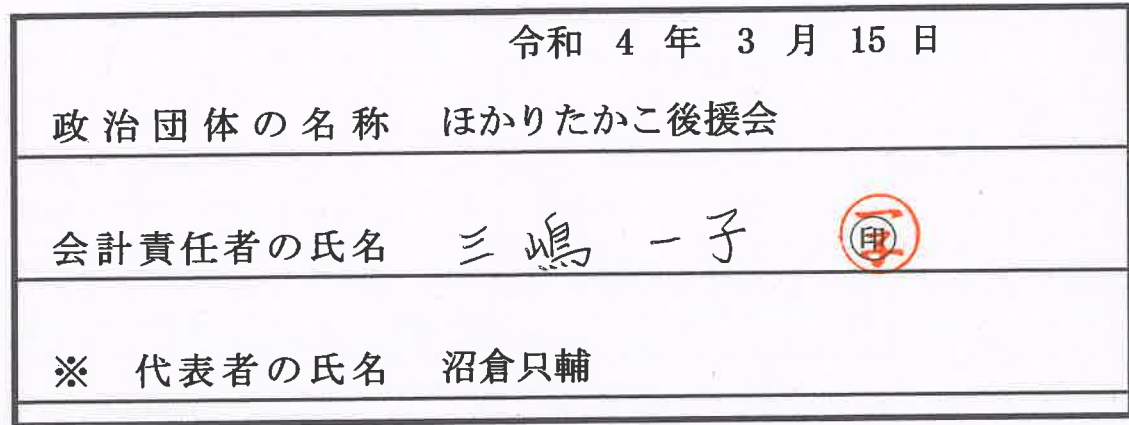 令和 4 年 3 月 15 日
政治団体の名称 ほかりたかこ後援会
会計責任者の氏名 三嶋 一子 印
※ 代表者の氏名 沼倉只輔